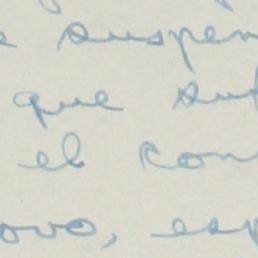 suspen
que suf
el con
ovo, esp